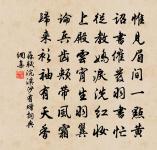 惟見眉間一點黃
詔書催發羽書忙
從教嬌淚洗紅妝
上殿雲霄生羽翼
論兵齒頰帶風霜
歸來衫袖有天香
蘇軾浣溪沙有贈詞典